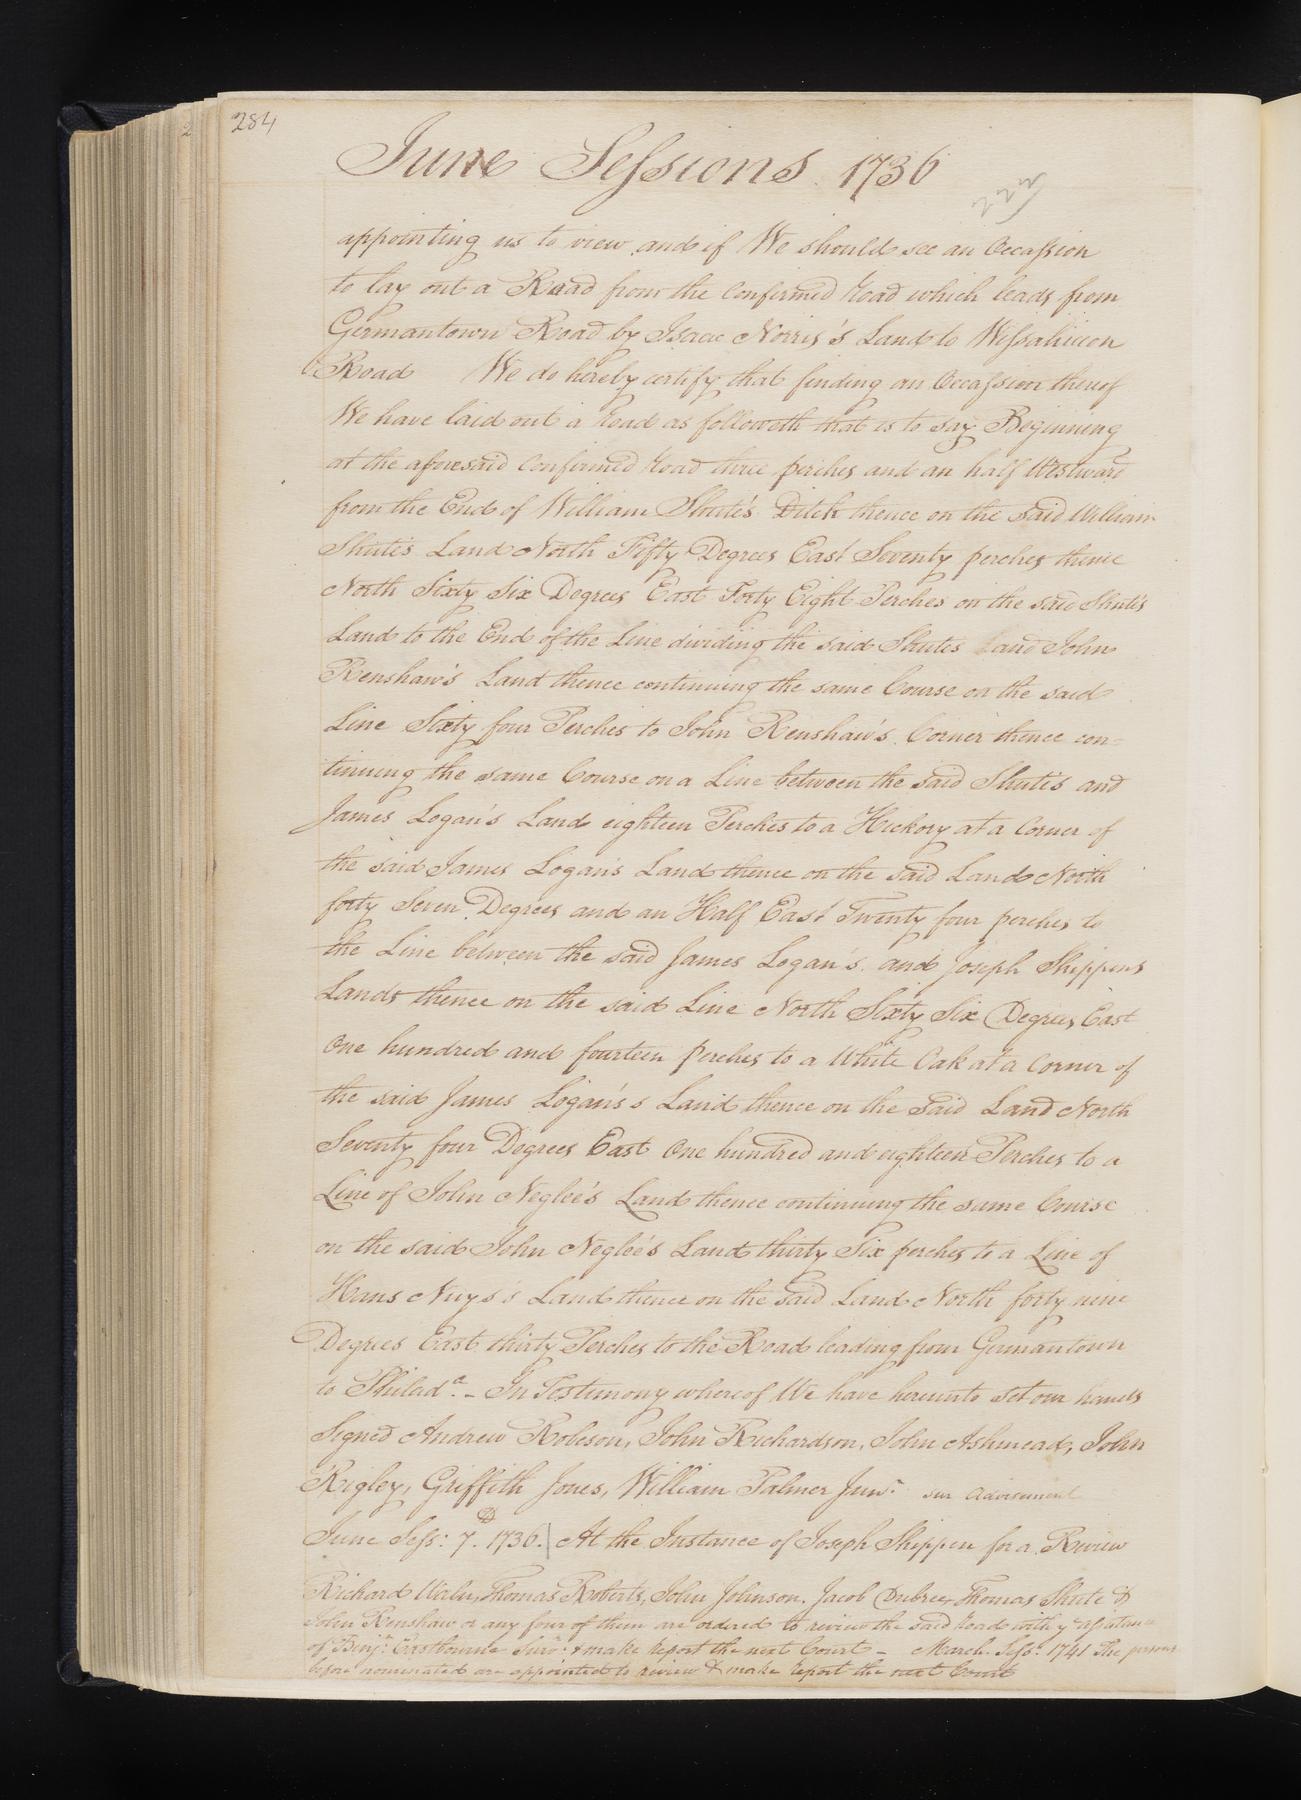 284
June Sessions 1736
appointing us to view and if We should see an Occassion
to lay out a Road from the Confirmed Road which leads from
Germantown Road by Isaac Norris's Land to Wissahiccon
Road We do hereby certify that finding an Occassion thereof
We have laid out a Road as followeth that is to say Beginning
at the aforesaid Confirmed Road three perches and an half Westward
from the End of William Shute's Ditch thence on the said William
Shute's Land North Fifty Degrees East Seventy perches thence
North Sixty Six Degrees East Forty Eight Perches on the said Shute's
Land to the End of the Line dividing the said Shutes and John
Renshaw's Land thence continuing the same Course on the said
Line Sixty four Perches to John Renshaw's Corner thence con=
tinuing the same Course on a Line between the said Shute's and
James Logan's Land eighteen Perches to a Hickory at a Corner of
the said James Logan's Land thence on the said Land North
forty Seven Degrees and an Half East Twenty four perches to
the Line between the said James Logan's and Joseph Shippens
Lands thence on the said Line North Sixty Six Degrees East
One hundred and fourteen perches to a White Oak at a Corner of
the said James Logan's s Land thence on the said Land North
Seventy four Degrees East One hundred and eighteen Perches to a
Line of John Neglee's Land thence continuing the same Course
on the said John Neglee's Land thirty Six perches to a Line of
Hans Nuys's Land thence on the said Land North forty nine
Degrees East thirty Perches to the Road leading from Germantown
to Philada. - In Testimony whereof We have hereunto set our hands
Signed Andrew Robeson, John Richardson, John Ashmead, John
Rigley, Griffith Jones, William Palmer Junr. sur advisement
June Sess: 7.D 1736. At the Instance of Joseph Shippen for a Review
Richard Waln, Thomas Roberts, John Johnson, Jacob Dubree, Thomas Shute &
John Renshaw or any four of them are ordered to review the said Road with ye assistance
of Benjn. Eastbourne Survr. & make Report the next Court - March Sess: 1741 The persons
before nominated are appointed to review & make Report the next Court